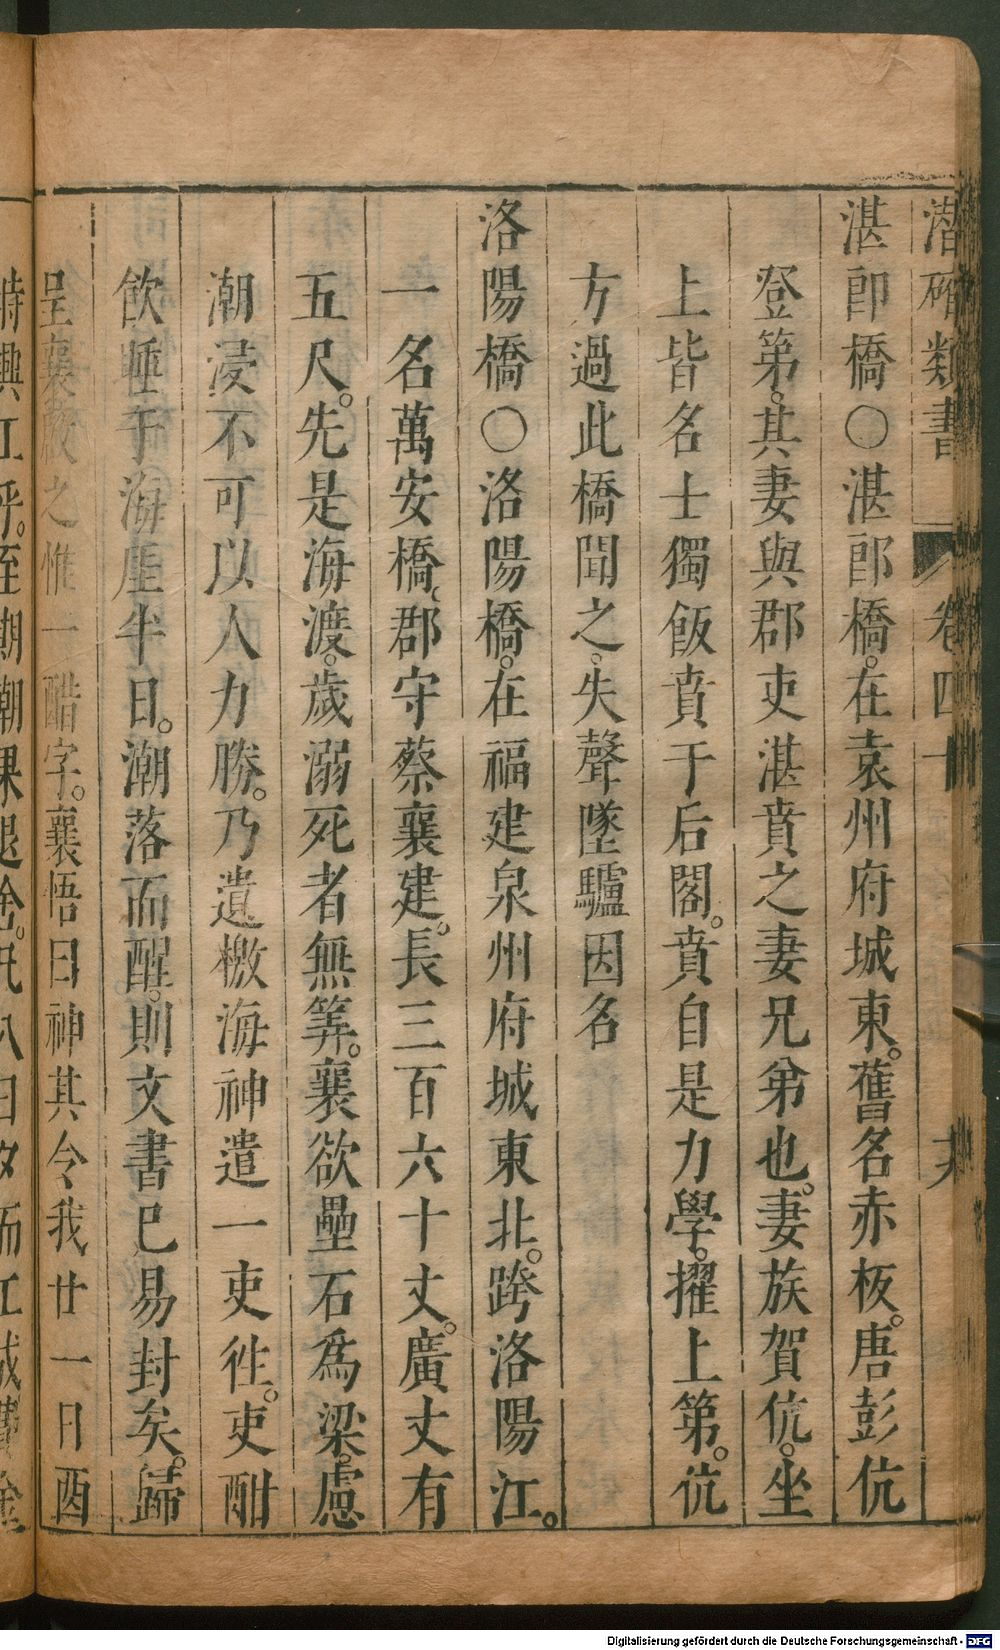 潛確類書 卷四十 十九
湛郎橋〇湛郎橋。在袁州府城東。舊名赤板。唐彭伉
登第。其妻與郡吏湛賁之妻兄弟也。妻族賀伉。坐
上皆名士獨飯賁于后閣。賁自是力學。擢上第。伉
方過此橋聞之。失聲墜驢因名
洛陽橋〇洛陽橋。在福建泉州府城東北。跨洛陽江。
一名萬安橋。郡守蔡襄建。長三百六十丈。廣丈有
五尺。先是海渡。歲溺死者無筭。襄欲壘石爲梁。慮
潮浸不可以人力勝。乃遺檄海神遣一吏徃。吏酣
飲睡于海厓半日。潮落而醒。則文書已易封矣。歸
呈襄啟之惟一醋字。襄悟曰神其令我廿一日酉
時興工乎。至期潮果退舍。凡八日夕而工成費金
Digitalisierung gefördert durch die Deutsche Forschungsgemeinschaft - DFG